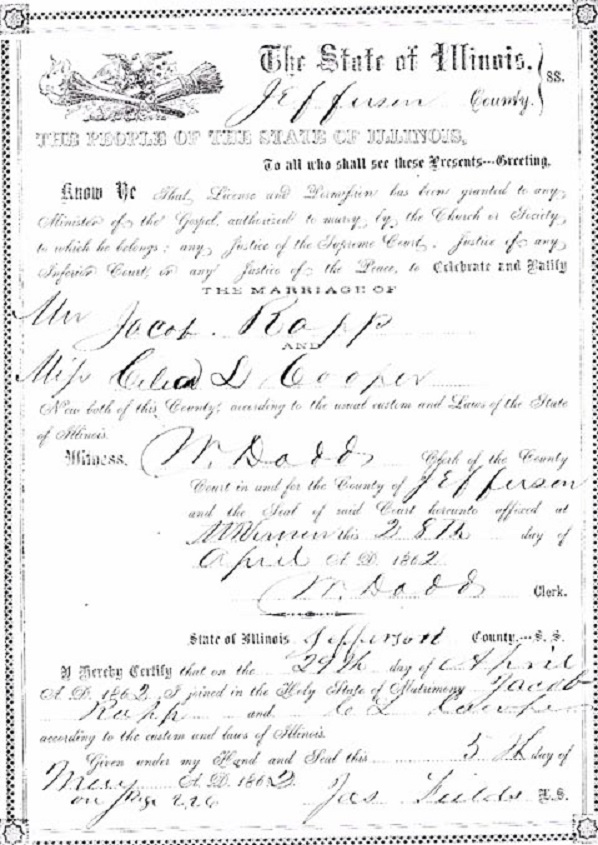 The State of Illinois.
Jefferson County. } SS.
THE PEOPLE OF THE STATE OF ILLINOIS,
To all who shall see these Presents---Greeting,
Know Ye That License and Permission has been granted to any
Minister of the Gospel, authorized to marry by the Church or Society
to which he belongs; any Justice of the Supreme Court, Justice of any
Inferior Court, or any Justice of the Peace, to Celebrate and Ratify
THE MARRIAGE OF
Mr Jacob Rapp
AND
Miss D Cooper
Now both of this County, according to the usual custom and Laws of the State
of Illinois.
Witness, W. Dodd Clerk of the County
Court in and for the County of Jefferson
and the Seal of said Court hereunto affixed at
Mt Vernon this 28th day of
April A D. 1862
W. Dodd Clerk.
State of Illinois Jefferson County---S. S.
I Hereby Certify that on the 29th day of April
A. D. 1862 I joined in the Holy State of Matrimony Jacob
Rapp and C L
according to the custom and laws of Illinois.
Given under my Hand and Seal this 5th day of
May A. D. 1862
on Page 226 Jas Fields L.S.